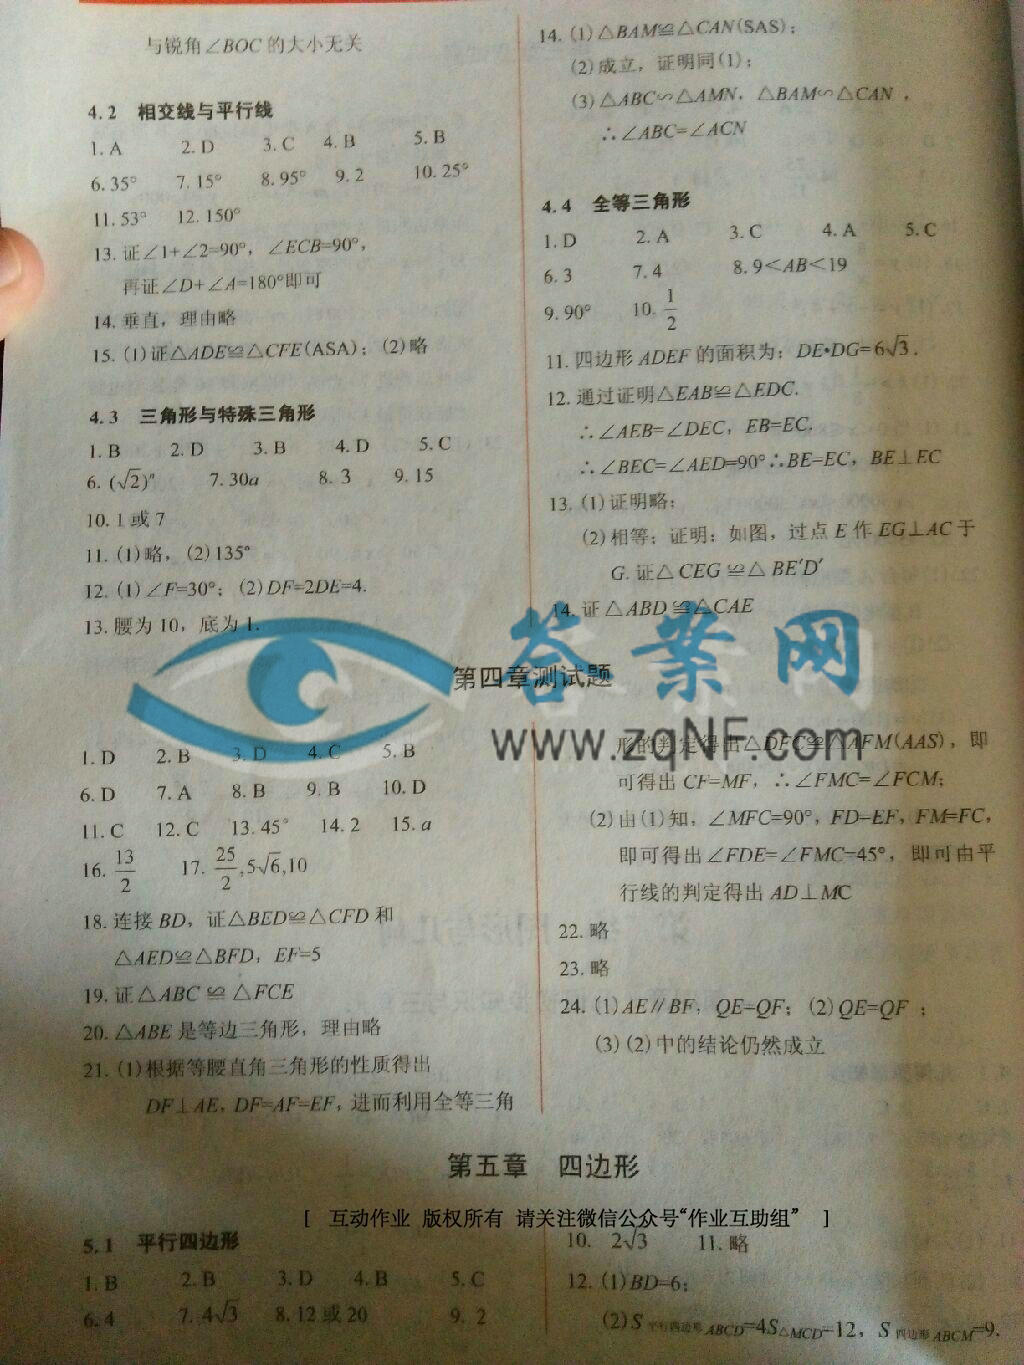 与锐角∠BOC的大小无关
4.2 相交线与平行线
1.A 2.D 3.C 4.B 5.B
6.35° 7.15° 8.95° 9.2 10.25°
11.53° 12.150°
13.证∠1+∠2=90°，∠ECB=90°，
再证∠D+∠A=180°即可
14.垂直，理由略
15.(1)证△ADE≌△CFE(ASA)；(2)略
4.3 三角形与特殊三角形
1.B 2.D 3.B 4.D 5.C
6.(√2)ⁿ 7.30a 8.3 9.15
10.1或7
11.(1)略，(2)135°
12.(1)∠F=30°；(2)DF=2DE=4.
13.腰为10，底为1.
14.(1)△BAM≌△CAN(SAS)；
(2)成立，证明同(1)；
(3)△ABC∽△AMN．△BAM∽△CAN，
∴∠ABC=∠ACN
4.4 全等三角形
1.D 2.A 3.C 4.A 5.C
6.3 7.4 8.9<AB<19
9.90° 10.1/2
11.四边形ADEF的面积为：DE•DG=6√3.
12.通过证明△EAB≌△EDC.
∴∠AEB=∠DEC，EB=EC.
∴∠BEC=∠AED=90°∴BE=EC，BE⊥EC
13.(1)证明略；
(2)相等；证明：如图，过点E作EG⊥AC于
G.证△CEG≌△BE′D′
14.证△ABD≌△CAE
答案网
www.zqNF.com
第四章测试题
1.D 2.B 3.D 4.C 5.B
6.D 7.A 8.B 9.B 10.D
11.C 12.C 13.45° 14.2 15.a
16.13/2 17.25/2,5√6,10
18.连接BD，证△BED≌△CFD和
△AED≌△BFD，EF=5
19.证△ABC≌△FCE
20.△ABE是等边三角形，理由略
21.(1)根据等腰直角三角形的性质得出
DF⊥AE，DF=AF=EF，进而利用全等三角
形的判定得出△DFC≌△AFM(AAS)，即
可得出CF=MF，∴∠FMC=∠FCM；
(2)由(1)知，∠MFC=90°，FD=EF，FM=FC，
即可得出∠FDE=∠FMC=45°，即可由平
行线的判定得出AD⊥MC
22.略
23.略
24.(1)AE∥BF；QE=QF；(2)QE=QF；
(3)(2)中的结论仍然成立
第五章 四边形
[ 互动作业 版权所有 请关注微信公众号“作业互助组” ]
5.1 平行四边形
1.B 2.B 3.D 4.B 5.C
6.4 7.4√3 8.12或20 9.2
10. 2√3 11.略
12.(1)BD=6；
(2)S平行四边形ABCD=4S△MCD=12，S四边形ABCM=9.